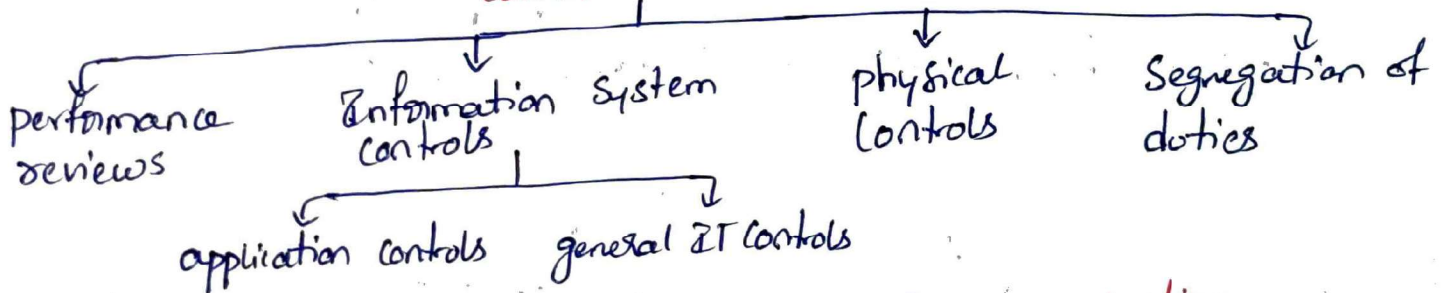 performance reviews
Information System controls
physical controls
Segregation of duties
application controls
general IT controls